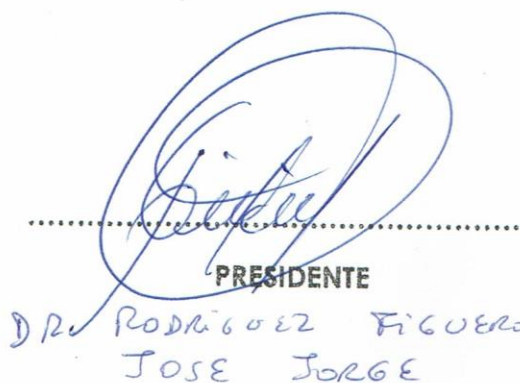 PRESIDENTE
DR. RODRIGUEZ FIGUERO
JOSE JORGE